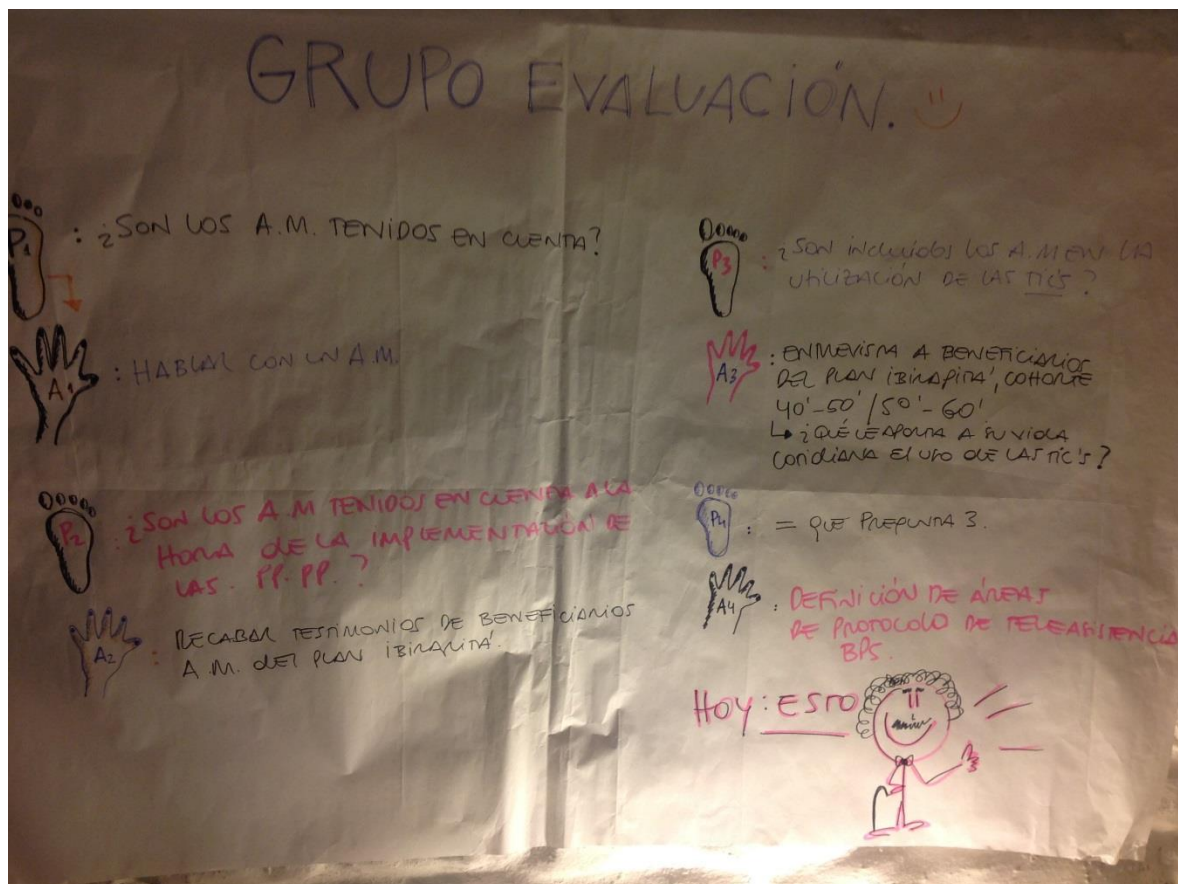 GRUPO EVALUACIÓN.
P1 : ¿SON LOS A.M. TENIDOS EN CUENTA?
A1 : HABLAR CON UN A.M.
P2 : ¿SON LOS A.M TENIDOS EN CUENTA A LA
HORA DE LA IMPLEMENTACIÓN DE
LAS. PP.PP. ?
A2 : RECABAR TESTIMONIOS DE BENEFICIARIOS
A.M. DEL PLAN IBIRAPITA'.
P3 : ¿SON incluidos LOS A.M EN LA
UTILIZACIÓN DE LAS TIC'S ?
A3 : ENTREVISTA A BENEFICIARIOS
DEL PLAN IBIRAPITA', COHORTE
40'-50' / 50'-60'
↳ ¿QUÉ LE APORTA A SU VIDA
COTIDIANA El USO DE LAS TIC'S ?
P4 : = QUE PREGUNTA 3.
A4 : DEFINICIÓN DE ÁREAS
DE PROTOCOLO DE TELEASISTENCIA
BPS.
HOY: ESTO